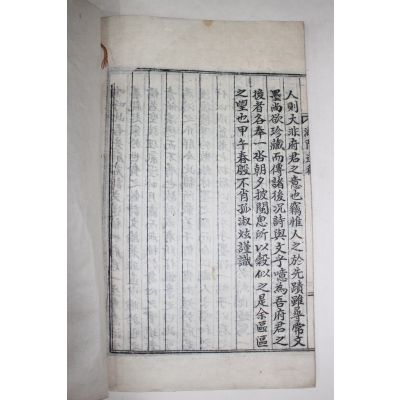 人則大非府君之意也竊惟人之於先蹟雖尋常文
墨尚欲珍藏而傳諸後況詩與文乎噫爲吾府君之
後者各奉一沓朝夕披閱思所以毅似之是余區區
之望也甲午春殷不肖孤淑炫謹識